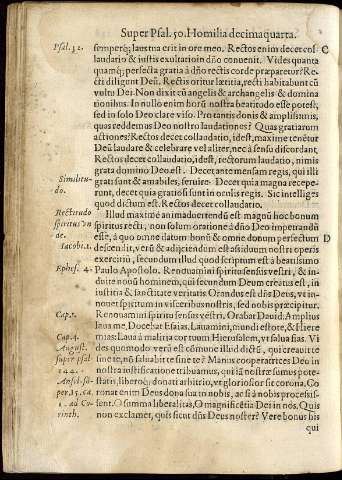 Super Psal. 50. Homilia decimaquarta.
Psal. 32.
semperq́; laus tua erit in ore meo. Rectos enim decet col
C
laudatio & iustis exultatio in dño conuenit. Vides quanta
quamq́; perfecta gratia à dño rectis corde præparetur? Re-
cti diligunt Deũ. Rectis oritur lætitia, recti habitabunt cũ
vultu Dei. Non dixit cũ angelis & archangelis & domina
tionibus. In nullo enim horũ nostra beatitudo esse potest,
sed in solo Deo clare viso. Pro tantis donis & amplissimis,
quas reddemus Deo nostro laudationes? Quas gratiarum
actiones? Rectos decet collaudatio, idest, maxime tenẽtur
Deũ laudare & celebrare vel aliter, nec à sensu discordant
Rectos decet collaudatio, idest, rectorum laudatio, nimis
grata domino Deo est. Decet ante mensam regis, qui illi
grati sunt & amabiles, seruire. Decet qui a magna recepe-
Similitu-
do.
runt, decet quia gratiosi sunt in oculis regis. Sic intelliges
quod dictum est. Rectos decet collaudatio.
Rectitudo
spiritus vn
de.
Illud maximè animaduertendũ est magnũ hoc bonum
spiritus recti, non solum oratione à dño Deo imperandũ
esse, à quo omne datum bonũ & omne donum perfectum
D
Iacobi. 1.
descendit, verũ & adijciendum est assiduum nostri operis
exercitiũ, secundum illud quod scriptum est à beatissimo
Ephes. 4.
Paulo Apostolo. Renouamini spiritu sensus vestri, & in-
duite nouũ hominem, qui secundum Deum creatus est, in
iustitia & sanctitate veritatis. Orandus est dñs Deus, vt in-
nouet spiritum in visceribus nostris, sed nobis præcipitur.
Cap. 1.
Renouamini spiritu sensus vestri. Orabat Dauid: Amplius
laua me, Docebat Esaias. Lauamini, mundi estote, & Iere
Cap. 4.
mias: Laua à malitia cor tuum Hierusalem, vt salua fias. Vi
August.
super psal
144.
des quomodo verũ est cõmune illud dictũ, qui creauit te
sine te, nõ saluabit te sine te? Manus cooperatrices Deo in
nostra iustificatione tribuamus, qui iã nostræ sumus potes-
Ansel. su-
per 15. ca.
1. ad Co-
rinth.
statis, liberoq́; donati arbitrio, vt gloriosior sit corona. Co
ronat enim Deus dona sua in nobis, ac si à nobis processis-
sent. O summa liberalitas, O magnificẽtia Dei in nos. Quis
non exclamet, quis sicut dñs Deus noster? Vere bonus his
qui